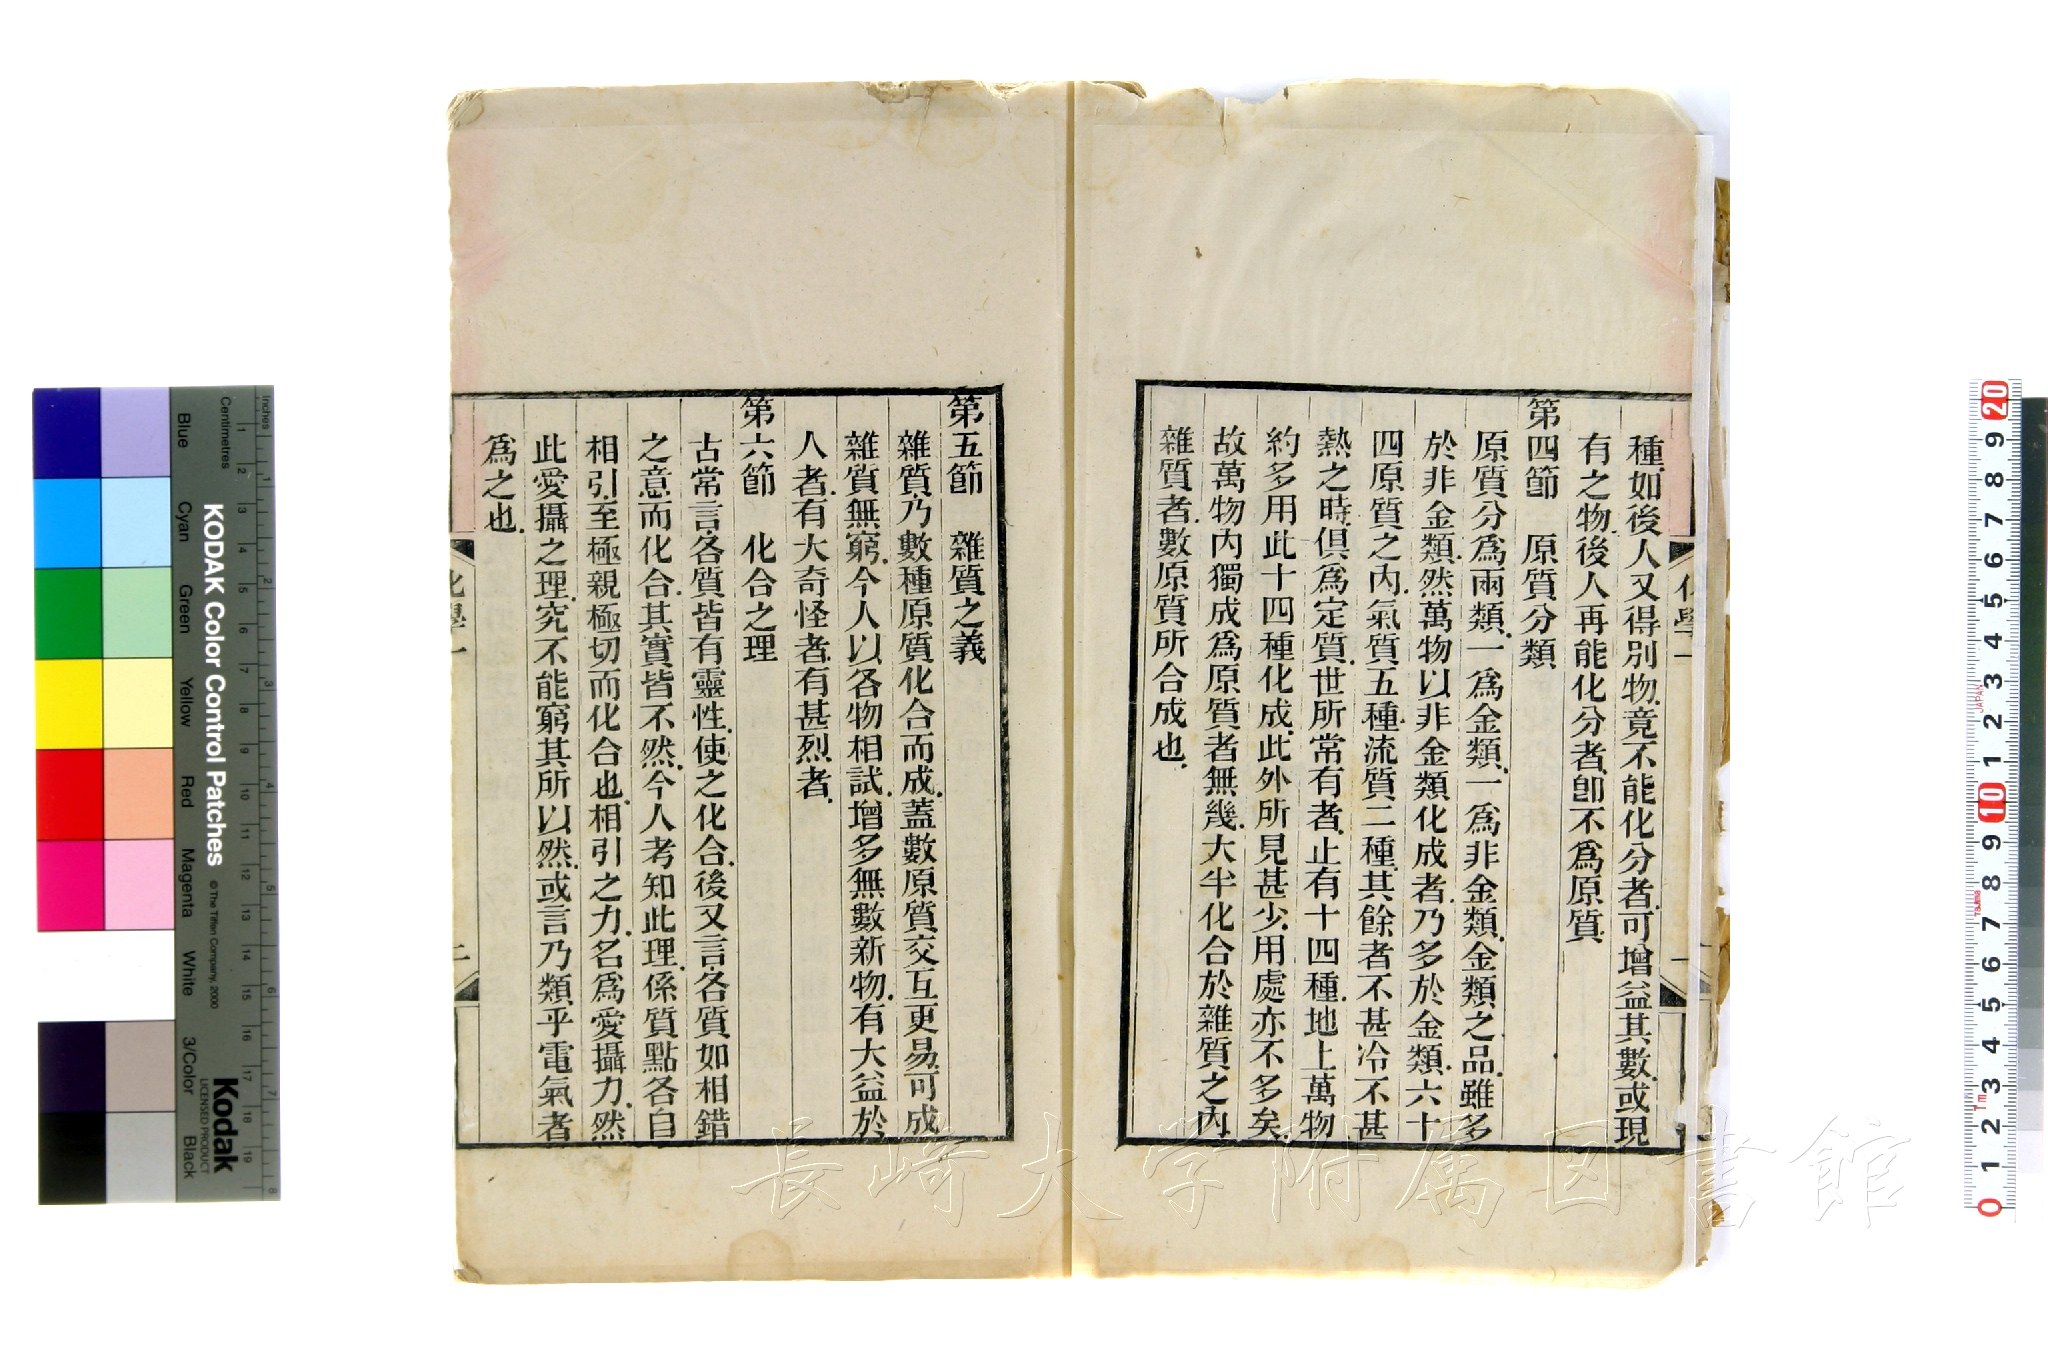 種如後人又得別物.竟不能化分者.可增益其數.或現
有之物.後人再能化分者.卽不爲原質
第四節　原質分類
原質分爲兩類.一爲金類.一爲非金類.金類之品.雖多
於非金類.然萬物以非金類化成者.乃多於金類.六十
四原質之內.氣質五種.流質二種.其餘者不甚冷不甚
熱之時.俱爲定質.世所常有者.止有十四種.地上萬物
約多用此十四種化成.此外所見甚少.用處亦不多矣.
故萬物內獨成爲原質者無幾.大半化合於雜質之內.
雜質者.數原質所合成也.
化學一
第五節　雜質之義
雜質.乃數種原質化合而成.蓋數原質交互更易.可成
雜質無窮.今人以各物相試.增多無數新物.有大益於
人者.有大奇怪者.有甚烈者.
第六節　化合之理
古常言.各質皆有靈性.使之化合.後又言.各質如相錯
之意而化合.其實皆不然.今人考知此理.係質點各自
相引.至極親極切而化合也.相引之力.名爲愛攝力.然
此愛攝之理.究不能窮其所以然.或言乃類乎電氣者
爲之也.
化學一
二
長崎大学附属図書館
KODAK Color Control Patches
© The Tiffen Company, 2000
Kodak
LICENSED PRODUCT
Inches
Centimetres
Blue
Cyan
Green
Yellow
Red
Magenta
White
3/Color
Black
1 2 3 4 5 6 7 8 9 10 11 12 13 14 15 16 17 18 19
1 2 3 4 5 6 7 8
0 1 2 3 4 5 6 7 8 9 10 1 2 3 4 5 6 7 8 9 20
JAPAN
Tajima